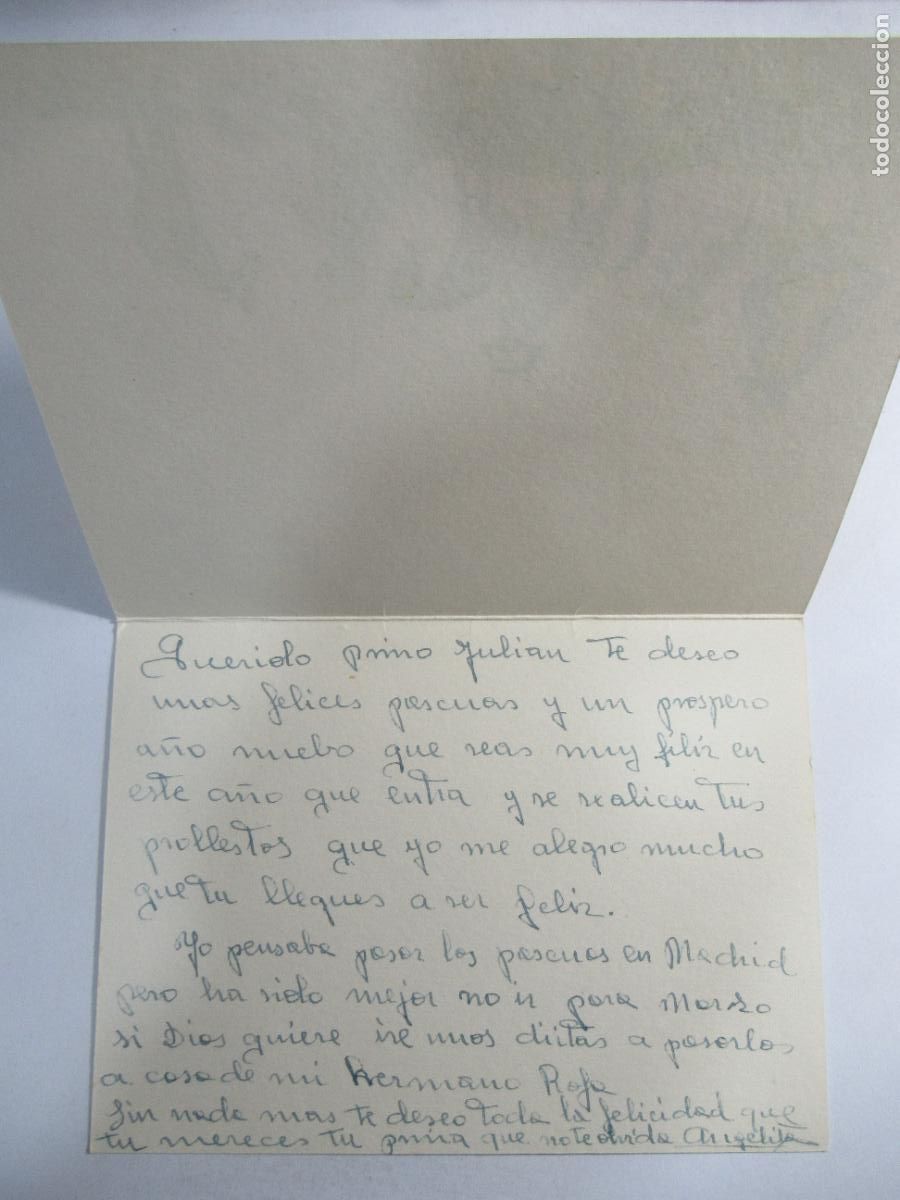 todocoleccion
Querido primo Julian te deseo
unas felices pascuas y un prospero
año nuebo que seas muy féliz en
este año que entra y se realicen tus
prollestos que yo me alegro mucho
que tu llegues a ser feliz.
Yo pensaba pasar las pascuas en Madrid
pero ha sido mejor no ir para Marzo
si Dios quiere iré unos diitas a pasarlos
a casa de mi hermano Rafa
Sin nada mas te deseo toda la felicidad que
tu mereces tu prima que no te olvida Angelita